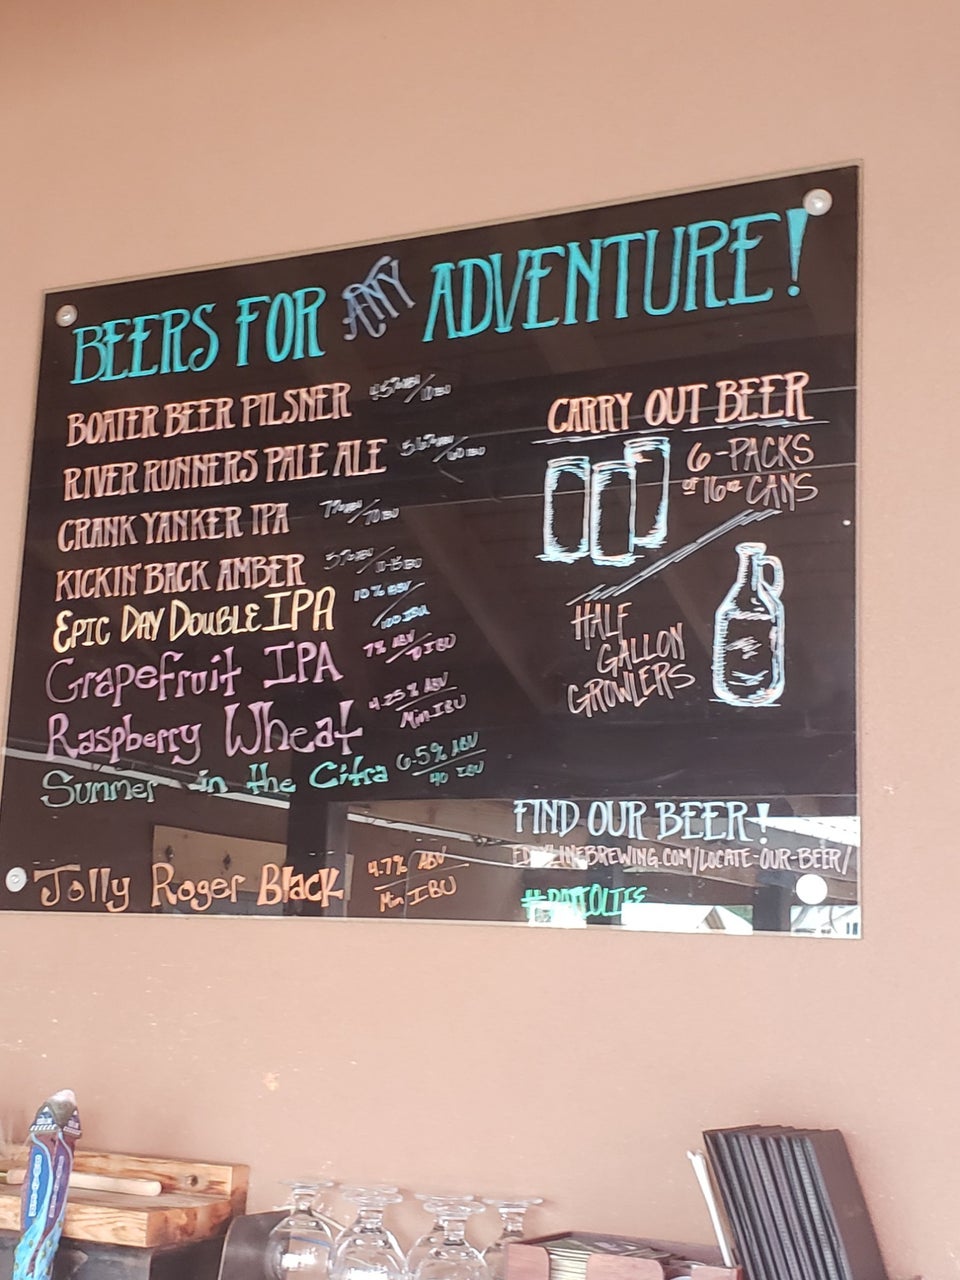 BEERS FOR ANY ADVENTURE!
BOATER BEER PILSNER 4.5% ABV/10 IBU
RIVER RUNNERS PALE ALE
CRANK YANKER IPA 7% ABV/70 IBU
KICKIN' BACK AMBER
EPIC DAY DOUBLE IPA 10% ABV
/100 IBU
Grapefruit IPA 7% ABV
70 IBU
Raspberry Wheat 4.25% ABV
Min IBU
Summer in the Citra 6.5% ABV
40 IBU
Jolly Roger Black 4.7% ABV
Min IBU
CARRY OUT BEER
6-PACKS
of 16oz CANS
HALF
GALLON
GROWLERS
FIND OUR BEER!
EDDYLINEBREWING.COM/LOCATE-OUR-BEER/